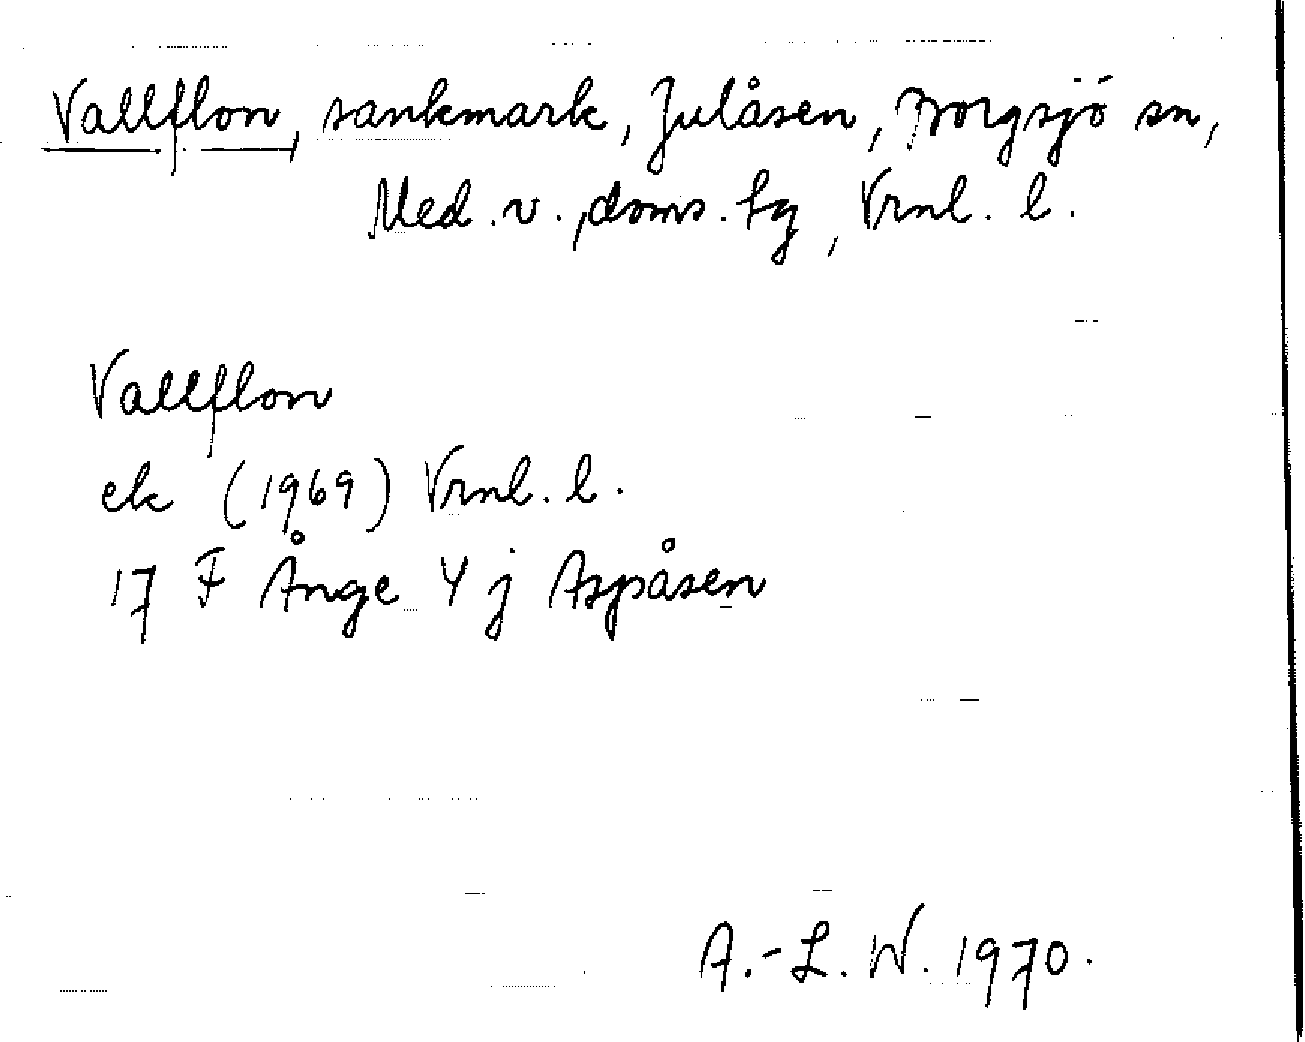 Vallflon, sankmark, Julåsen, Borgsjö sn,
Med. v., doms. tg, Vrnl. l.
Vallflon
ek (1969) Vrnl. l.
17 F Ånge 4 j Aspåsen
A.-L. W. 1970.